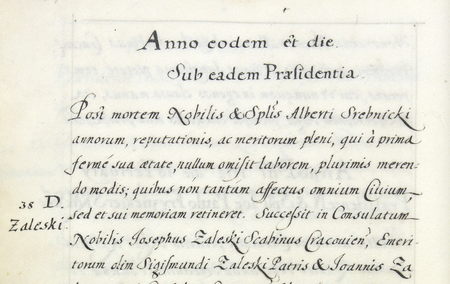 Anno eodem et die
Sub eadem Præsidentia.
Post mortem Nobilis & Splis Alberti Srebnicki
annorum, reputationis, ac meritorum pleni, qui à prima
fermè sua ætate, nullum omisit laborem, plurimis meren-
do modis; quibus non tantum affectus omnium Civium
sed et sui memoriam retineret. Successit in Consulatum
38 D.
Zaleski.
Nobilis Iosephus Zaleski Scabinus Cracovien, Emeri-
torum olim Sigismundi Zaleski Patris & Ioannis Za